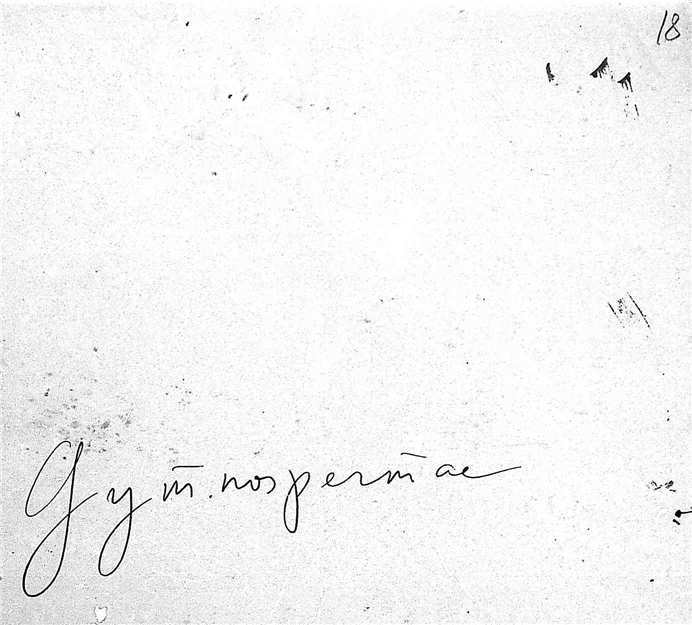 18
Gym̄.nosperm̄ae